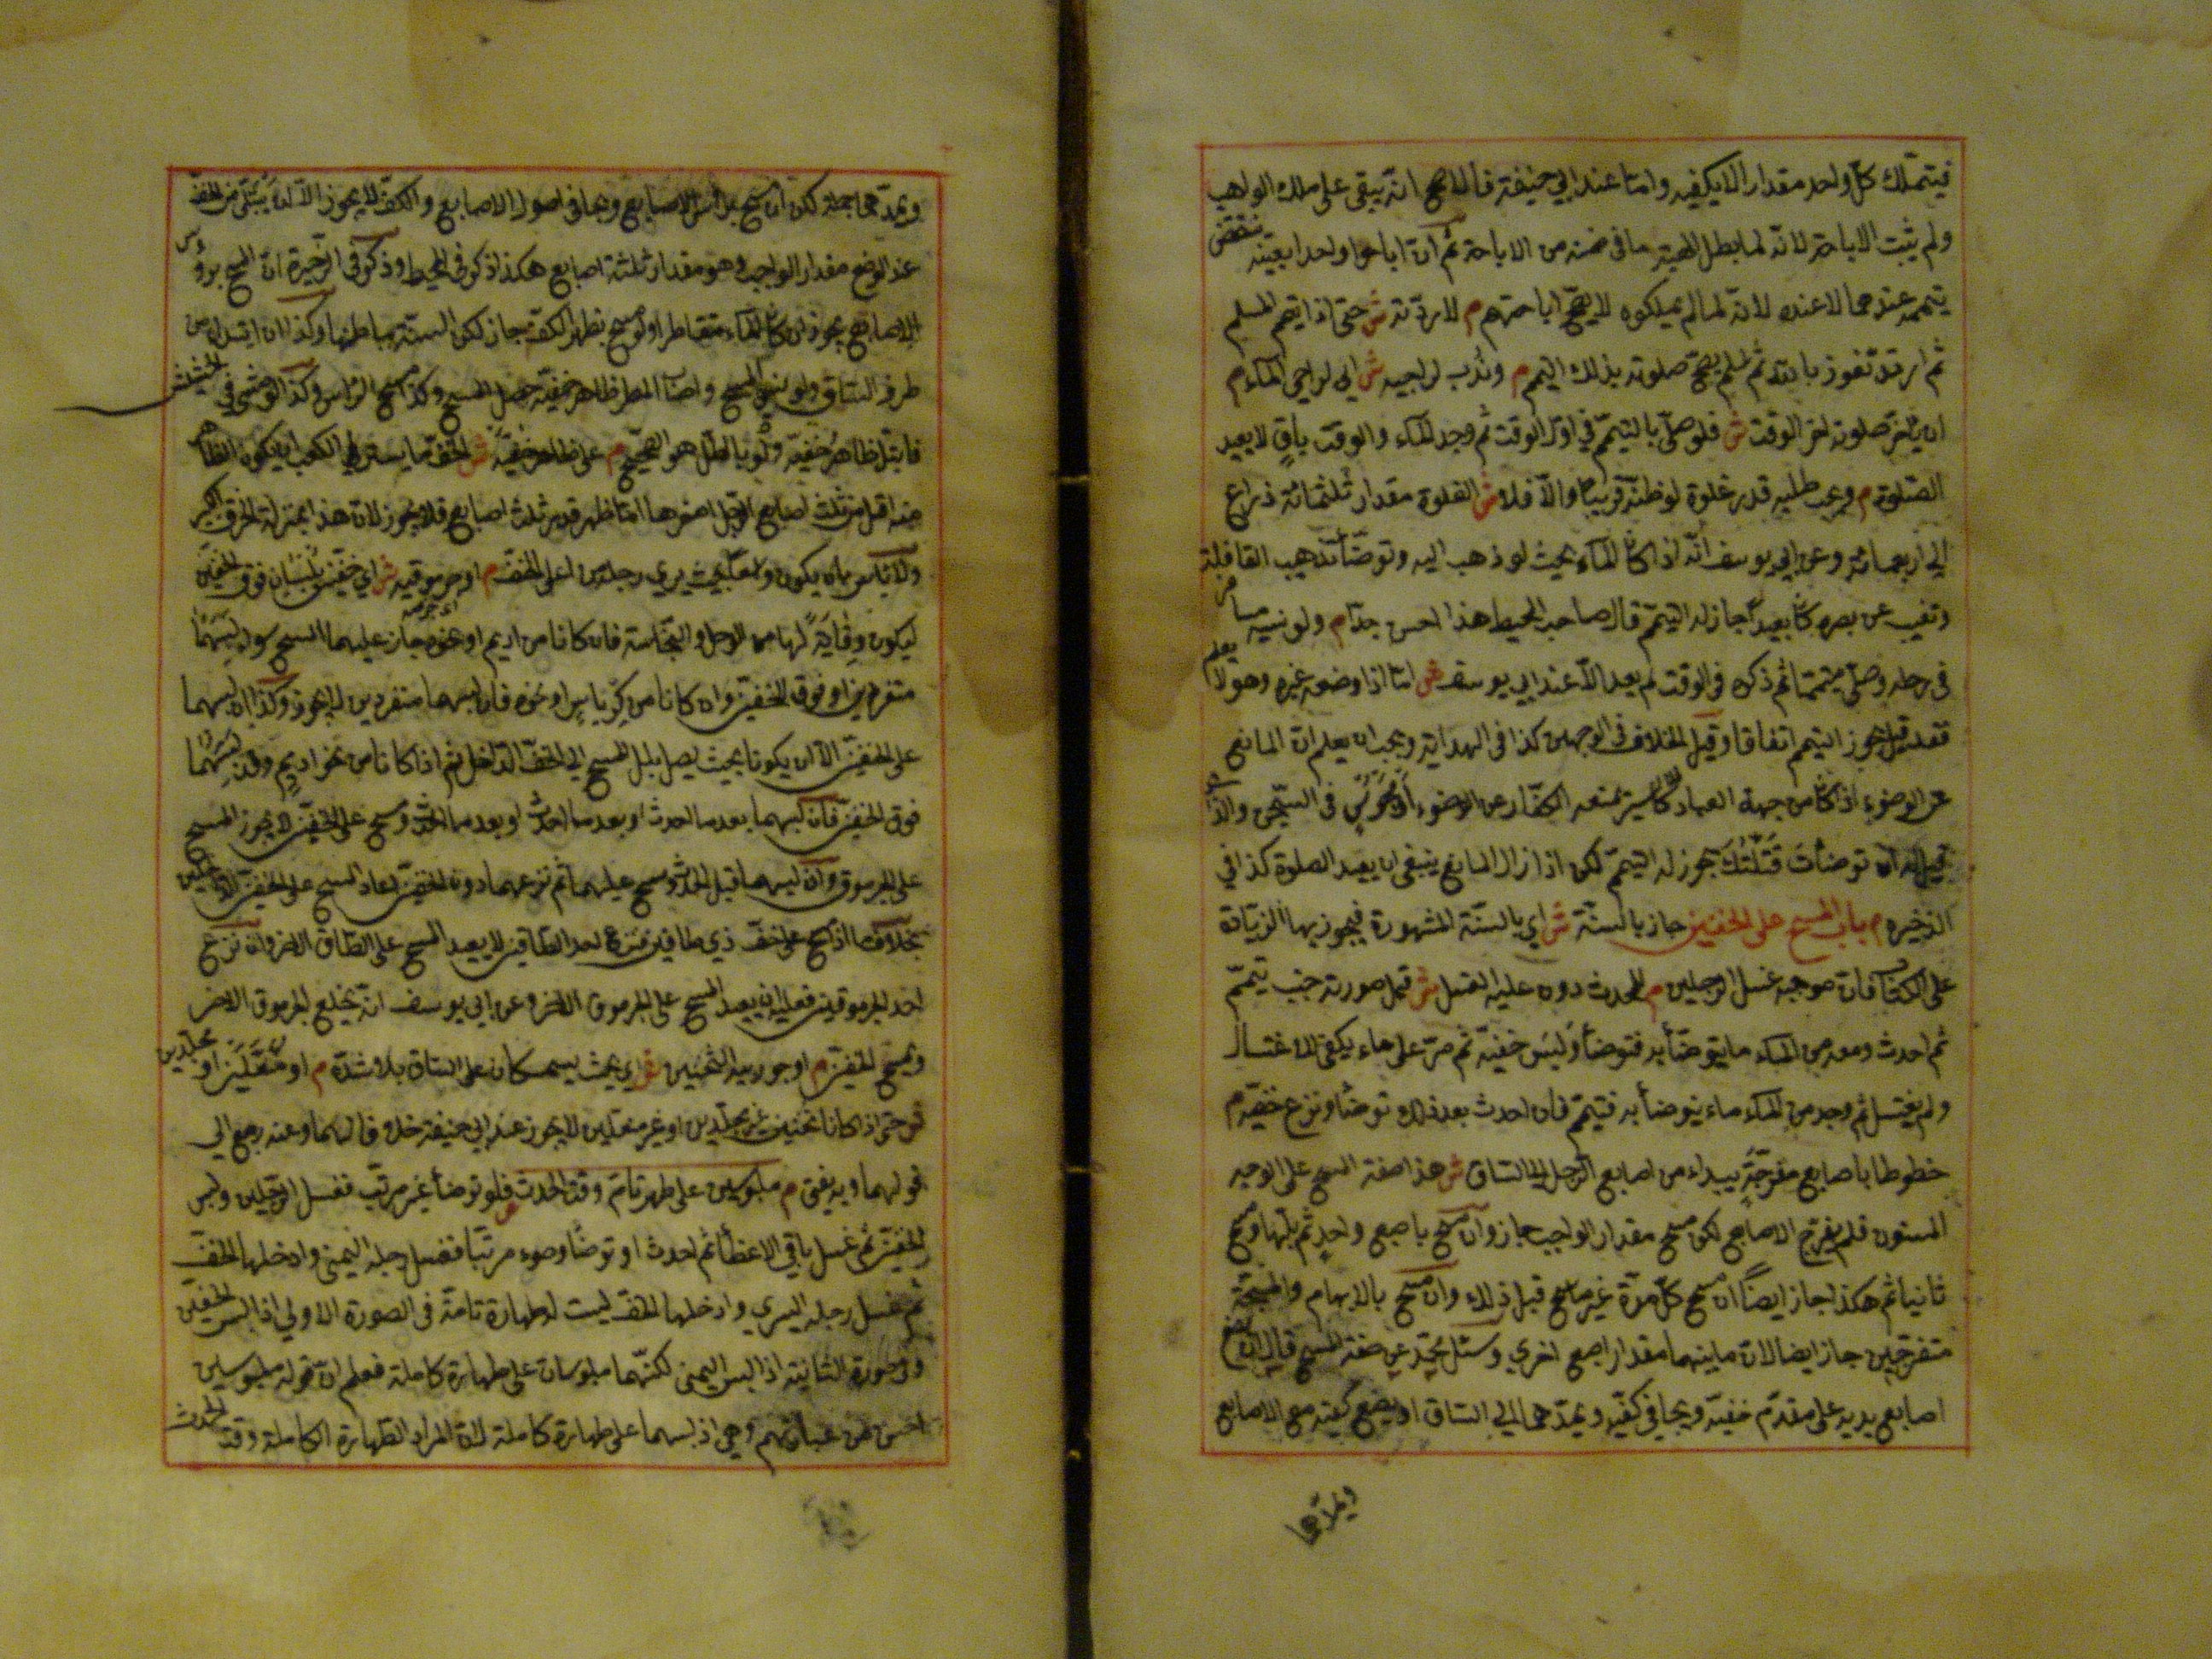 فيتملك كل واحد مقدارا لا يكفيه واما عند ابي حنيفة فالاصح انه يبقى على ملك الواهب
ولم يثبت الاباحة لانه لما بطل الهبة بطل ما في ضمنه من الاباحة ثم ان اباحوا واحدا بعينه ينتقض
تيممه عندهما لا عنده لانه لما لم يملكوه لا يصح اباحتهم م لا ردته ش حتى اذا تيمم المسلم
ثم ارتد نعوذ بالله ثم اسلم يصح صلوته بذلك التيمم م وندب لراجيه ش اي لراجي الماء م
ان يؤخر صلوته اخر الوقت ش فلو صلى بالتيمم في اول الوقت ثم وجد الماء والوقت باق لا يعيد
الصلوة م ويجب طلبه قدر غلوة لو ظنه قريبا والا فلا ش الغلوة مقدار ثلثمائة ذراع
الى اربعمائة وعن ابي يوسف انه اذا كان الماء بحيث لو ذهب اليه وتوضأ تذهب القافلة
وتغيب عن بصره كان بعيدا جاز له التيمم قال صاحب المحيط هذا احسن جدا م ولو نسيه مسافر
في رحله وصلى متيمما ثم ذكره في الوقت لم يعد الا عند ابي يوسف ش اما اذا وضعه غيره وهو لا يعلم
فقد قيل يجوز التيمم اتفاقا وقيل الخلاف في الوجهين كذا في الهداية ويجب ان يعلم ان المانع
عن الوضوء اذا كان من جهة العباد كاسير يمنعه الكفار عن الوضوء او محبوس في السجن والذي
قيل له ان توضأت قتلتك يجوز له التيمم لكن اذا زال المانع ينبغي ان يعيد الصلوة كذا في
الذخيره م باب المسح على الخفين جاز بالسنة ش اي بالسنة المشهورة فيجوز بها الزيادة
على الكتاب فان موجبه غسل الرجلين م للمحدث دون من عليه الغسل ش قيل صورته جنب تيمم
ثم احدث ومعه من الماء ما يتوضأ به فتوضأ ولبس خفيه ثم مر على ماء يكفي للاغتسال
ولم يغتسل ثم وجد من الماء ماء يتوضأ به فتيمم فان احدث بعد ذلك توضأ ونزع خفيه م
خطوطا باصابع مفرجة يبداء من اصابع الرجل الى الساق ش هذا صفة المسح على الوجه
المسنون فلو لم يفرج الاصابع لكن مسح مقدار الواجب جاز وان مسح باصبع واحد ثم بلها ومسح
ثانيا ثم هكذا جاز ايضا ان مسح كل مرة غير ما مسح قبل ذلك وان مسح بالابهام والمسبحة
متفرجتين جاز ايضا لان ما بينهما مقدار اصبع اخري وسئل محمد عن صفة المسح قال ان يضع
اصابع يديه على مقدم خفيه ويجافي كفيه ويمدهما الى الساق او يضع كفيه مع الاصابع
ويمدهما
ويمدهما جملة لكن ان مسح برأس الاصابع وجافى اصول الاصابع والكف لا يجوز الا ان يبتل من الخف
عند الوضع مقدار الواجب وهو مقدار ثلثة اصابع هكذا ذكر في المحيط وذكر في الذخيرة ان المسح برؤس
الاصابع يجوز ان كان الماء متقاطرا ولو مسح بظهر الكف جاز لكن السنة بباطنها وكذا ان ابتداء من
طرف الساق ولو نسي المسح واصاب المطر ظاهر خفيه حصل المسح وكذا مسح الرأس وكذا لو مشى في الحشيش
فابتل ظاهر خفيه ولو بالطل هو الصحيح م على ظاهر خفيه ش الخف ما يستر الكعب او يكون الظاهر
منه اقل من ثلث اصابع الرجل اصغرها اما لو ظهر قدر ثلث اصابع فلا يجوز لان هذا بمنزلة الخرق الكبير
ولا بأس بان يكون واسعا بحيث يرى رجله من اعلى الخف م او جرموقيه ش اي خفين يلبسان فوق الخفين
ليكون وقاية لهما من الوحل والنجاسة فان كانا من اديم او نحوه جاز عليهما المسح سواء لبسهما
منفردين او فوق الخفين وان كانا من كرباس او نحوه فان لبسهما منفردين لا يجوز وكذا ان لبسهما
على الخفين الا ان يكونا بحيث يصل بلل المسح الى الخف الداخل ثم اذا كانا من نحو اديم وقد لبسهما
فوق الخفين فان لبسهما بعد ما احدث او بعد ما احدث ومسح على الخفين لا يجوز المسح
على الجرموق وان لبسهما قبل الحدث ومسح عليهما ثم نزعهما دون الخفين اعاد المسح على الخفين الداخلين
بخلاف ما اذا مسح على خف ذي طاقين فنزع احد الطاقين لا يعيد المسح على الطاق الاخر وان نزع
احد الجرموقين فعليه ان يعيد المسح على الجرموق الاخر وعن ابي يوسف انه يخلع الجرموق الاخر
ويمسح الخفين م او جوربيه الثخينين ش اي بحيث يستمسكان على الساق بلا شدة م او منعلين او مجلدين
ش حتى اذا كانا ثخينين غير مجلدين او غير منعلين لا يجوز عند ابي حنيفة خلافا لهما وعنه رجع الى
قولهما وبه يفتى م ملبوسين على طهر تام وقت الحدث ش فلو توضأ غير مرتب فغسل الرجلين ولبس
الخفين ثم غسل باقي الاعضاء ثم احدث او توضأ وضوء مرتبا فغسل رجله اليمنى وادخلها الخف
ثم غسل رجله اليسرى وادخلها الخف ليست له طهارة تامة في الصورة الاولى اذا لبس الخفين
وفي صورة الثانية اذا لبس اليمنى لكنهما ملبوسان على طهارة كاملة فعلم ان قوله ملبوسين
احسن من عبارتهم وهي اذا لبسهما على طهارة كاملة لان المراد الطهارة الكاملة وقت الحدث